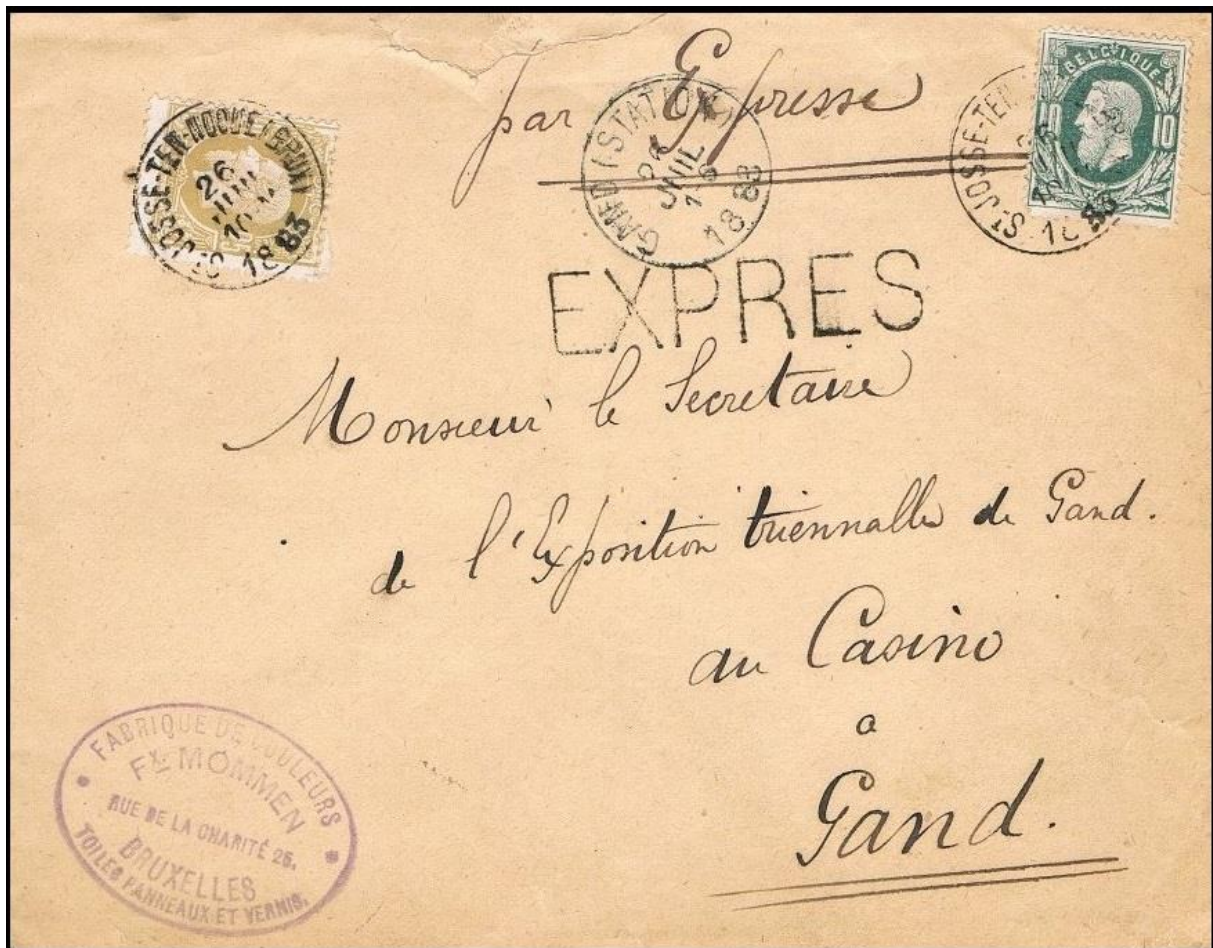 par Expresse
BELGIQUE
10 10
St JOSSE-TEN-NOODE (BRUX)
26
JUIL
10
1883
GAND (STATION)
26
JUIL
1883
St JOSSE-TEN
1883
EXPRES
Monsieur le Secretaire
de l'Exposition triennalle de Gand.
au Casino
a
Gand.
FABRIQUE DE COULEURS
Fx MOMMEN
RUE DE LA CHARITÉ 25.
BRUXELLES
TOILES PANNEAUX ET VERNIS.